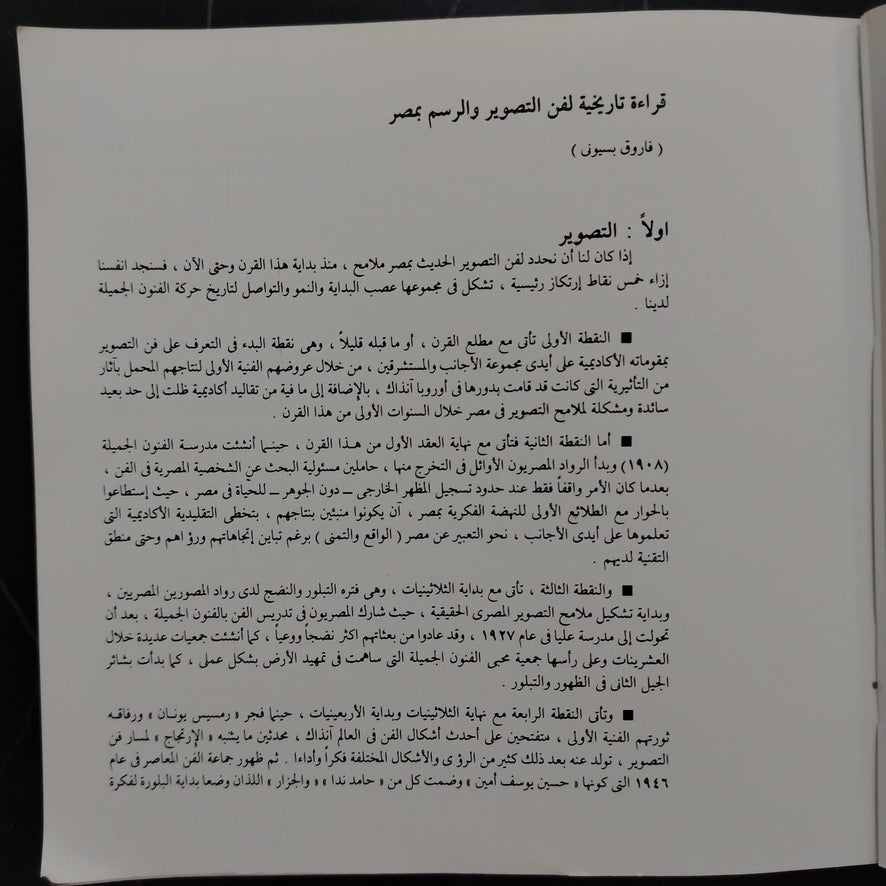 قراءة تاريخية لفن التصوير والرسم بمصر
( فاروق بسيونى )
اولاً : التصوير
إذا كان لنا أن نحدد لفن التصوير الحديث بمصر ملامح ، منذ بداية هذا القرن وحتى الآن ، فسنجد انفسنا
إزاء خمس نقاط إرتكاز رئيسية ، تشكل فى مجموعها عصب البداية والنمو والتواصل لتاريخ حركة الفنون الجميلة
لدينا .
■ النقطة الأولى تأتى مع مطلع القرن ، أو ما قبله قليلاً ، وهى نقطة البدء فى التعرف على فن التصوير
بمقوماته الأكاديمية على أيدى مجموعة الأجانب والمستشرقين ، من خلال عروضهم الفنية الأولى لنتاجهم المحمل بآثار
من التأثيرية التى كانت قد قامت بدورها فى أوروبا آنذاك ، بالإضافة إلى ما فية من تقاليد أكاديمية ظلت إلى حد بعيد
سائدة ومشكلة لملامح التصوير فى مصر خلال السنوات الأولى من هذا القرن .
■ أما النقطة الثانية فتأتى مع نهاية العقد الأول من هـذا القرن ، حينما أنشئت مدرسة الفنون الجميلة
(١٩٠٨) وبدأ الرواد المصريون الأوائل فى التخرج منها ، حاملين مسئولية البحث عن الشخصية المصرية فى الفن ،
بعدما كان الأمر واقفاً فقط عند حدود تسجيل المظهر الخارجى ــ دون الجوهر ــ للحياة فى مصر ، حيث إستطاعوا
بالحوار مع الطلائع الأولى للنهضة الفكرية بمصر ، أن يكونوا منبئين بنتاجهم ، بتخطى التقليدية الأكاديمية التى
تعلموها على أيدى الأجانب ، نحو التعبير عن مصر ( الواقع والتمنى ) برغم تباين إتجاهاتهم ورؤ اهم وحتى منطق
التقنية لديهم .
■ والنقطة الثالثة ، تأتى مع بداية الثلاثينيات ، وهى فتره التبلور والنضج لدى رواد المصورين المصريين ،
وبداية تشكيل ملامح التصوير المصرى الحقيقية ، حيث شارك المصريون فى تدريس الفن بالفنون الجميلة ، بعد أن
تحولت إلى مدرسة عليا فى عام ١٩٢٧ ، وقد عادوا من بعثاتهم اكثر نضجاً ووعياً ، كما أنشئت جمعيات عديدة خلال
العشرينات وعلى رأسها جمعية محبى الفنون الجميلة التى ساهمت فى تمهيد الأرض بشكل عملى ، كما بدأت بشائر
الجيل الثانى فى الظهور والتبلور .
■ وتأتى النقطة الرابعة مع نهاية الثلاثينيات وبداية الأربعينيات ، حينما فجر « رمسيس يونـان » ورفاقـه
ثورتهم الفنية الأولى ، متفتحين على أحدث أشكال الفن فى العالم آنذاك ، محدثين ما يشبه « الإرتجاج » لمسار فن
التصوير ، تولد عنه بعد ذلك كثير من الرؤ ى والأشكال المختلفة فكراً وأداءا . ثم ظهور جماعة الفن المعاصر فى عام
١٩٤٦ التى كونها « حسين يوسف أمين » وضمت كل من « حامد ندا » « والجزار » اللذان وضعا بداية البلورة لفكرة